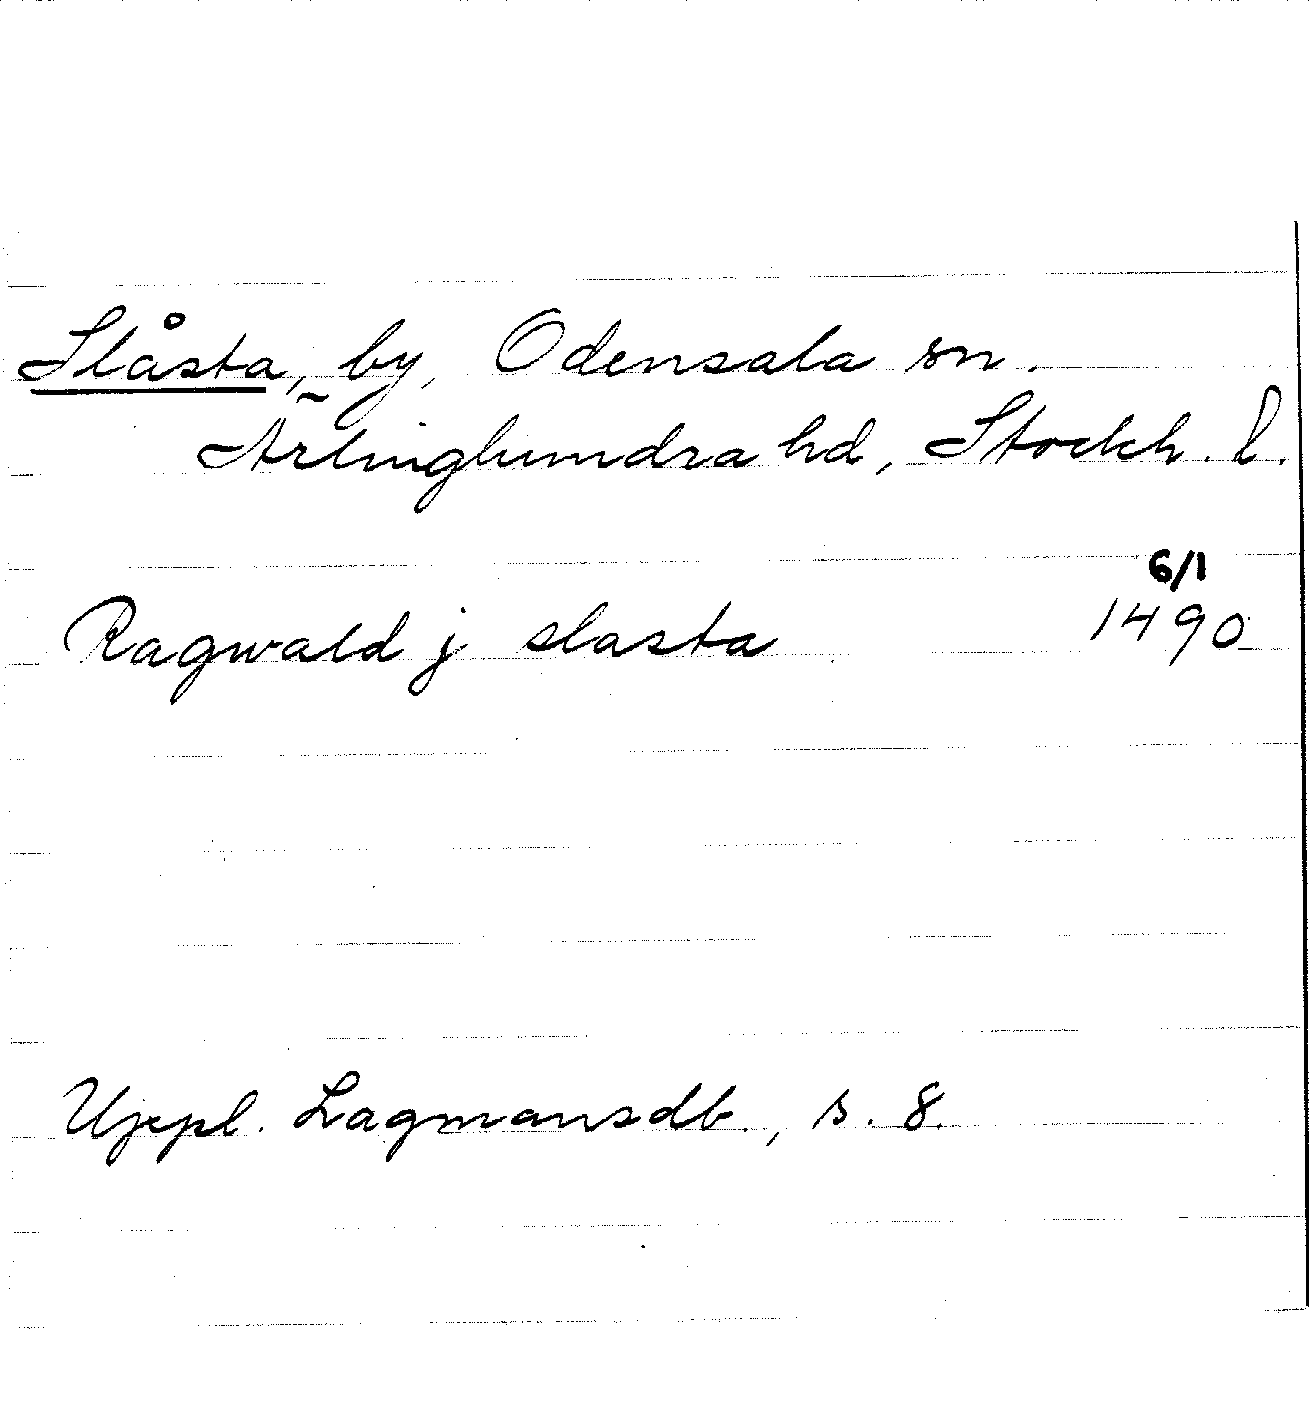 Slåsta, by, Odensala sn.
Ärlinghundra hd, Stockh. l.
6/1
Ragwald j slasta 1490
Uppl. Lagmansdb., s. 8.